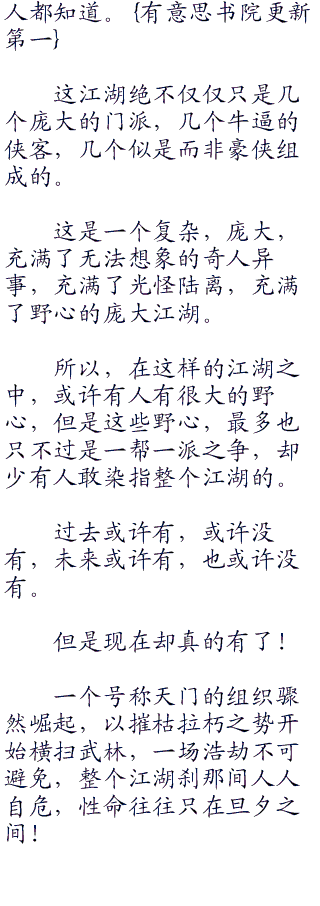 人都知道。{有意思书院更新
第一}
这江湖绝不仅仅只是几
个庞大的门派，几个牛逼的
侠客，几个似是而非豪侠组
成的。
这是一个复杂，庞大，
充满了无法想象的奇人异
事，充满了光怪陆离，充满
了野心的庞大江湖。
所以，在这样的江湖之
中，或许有人有很大的野
心，但是这些野心，最多也
只不过是一帮一派之争，却
少有人敢染指整个江湖的。
过去或许有，或许没
有，未来或许有，也或许没
有。
但是现在却真的有了！
一个号称天门的组织骤
然崛起，以摧枯拉朽之势开
始横扫武林，一场浩劫不可
避免，整个江湖刹那间人人
自危，性命往往只在旦夕之
间！